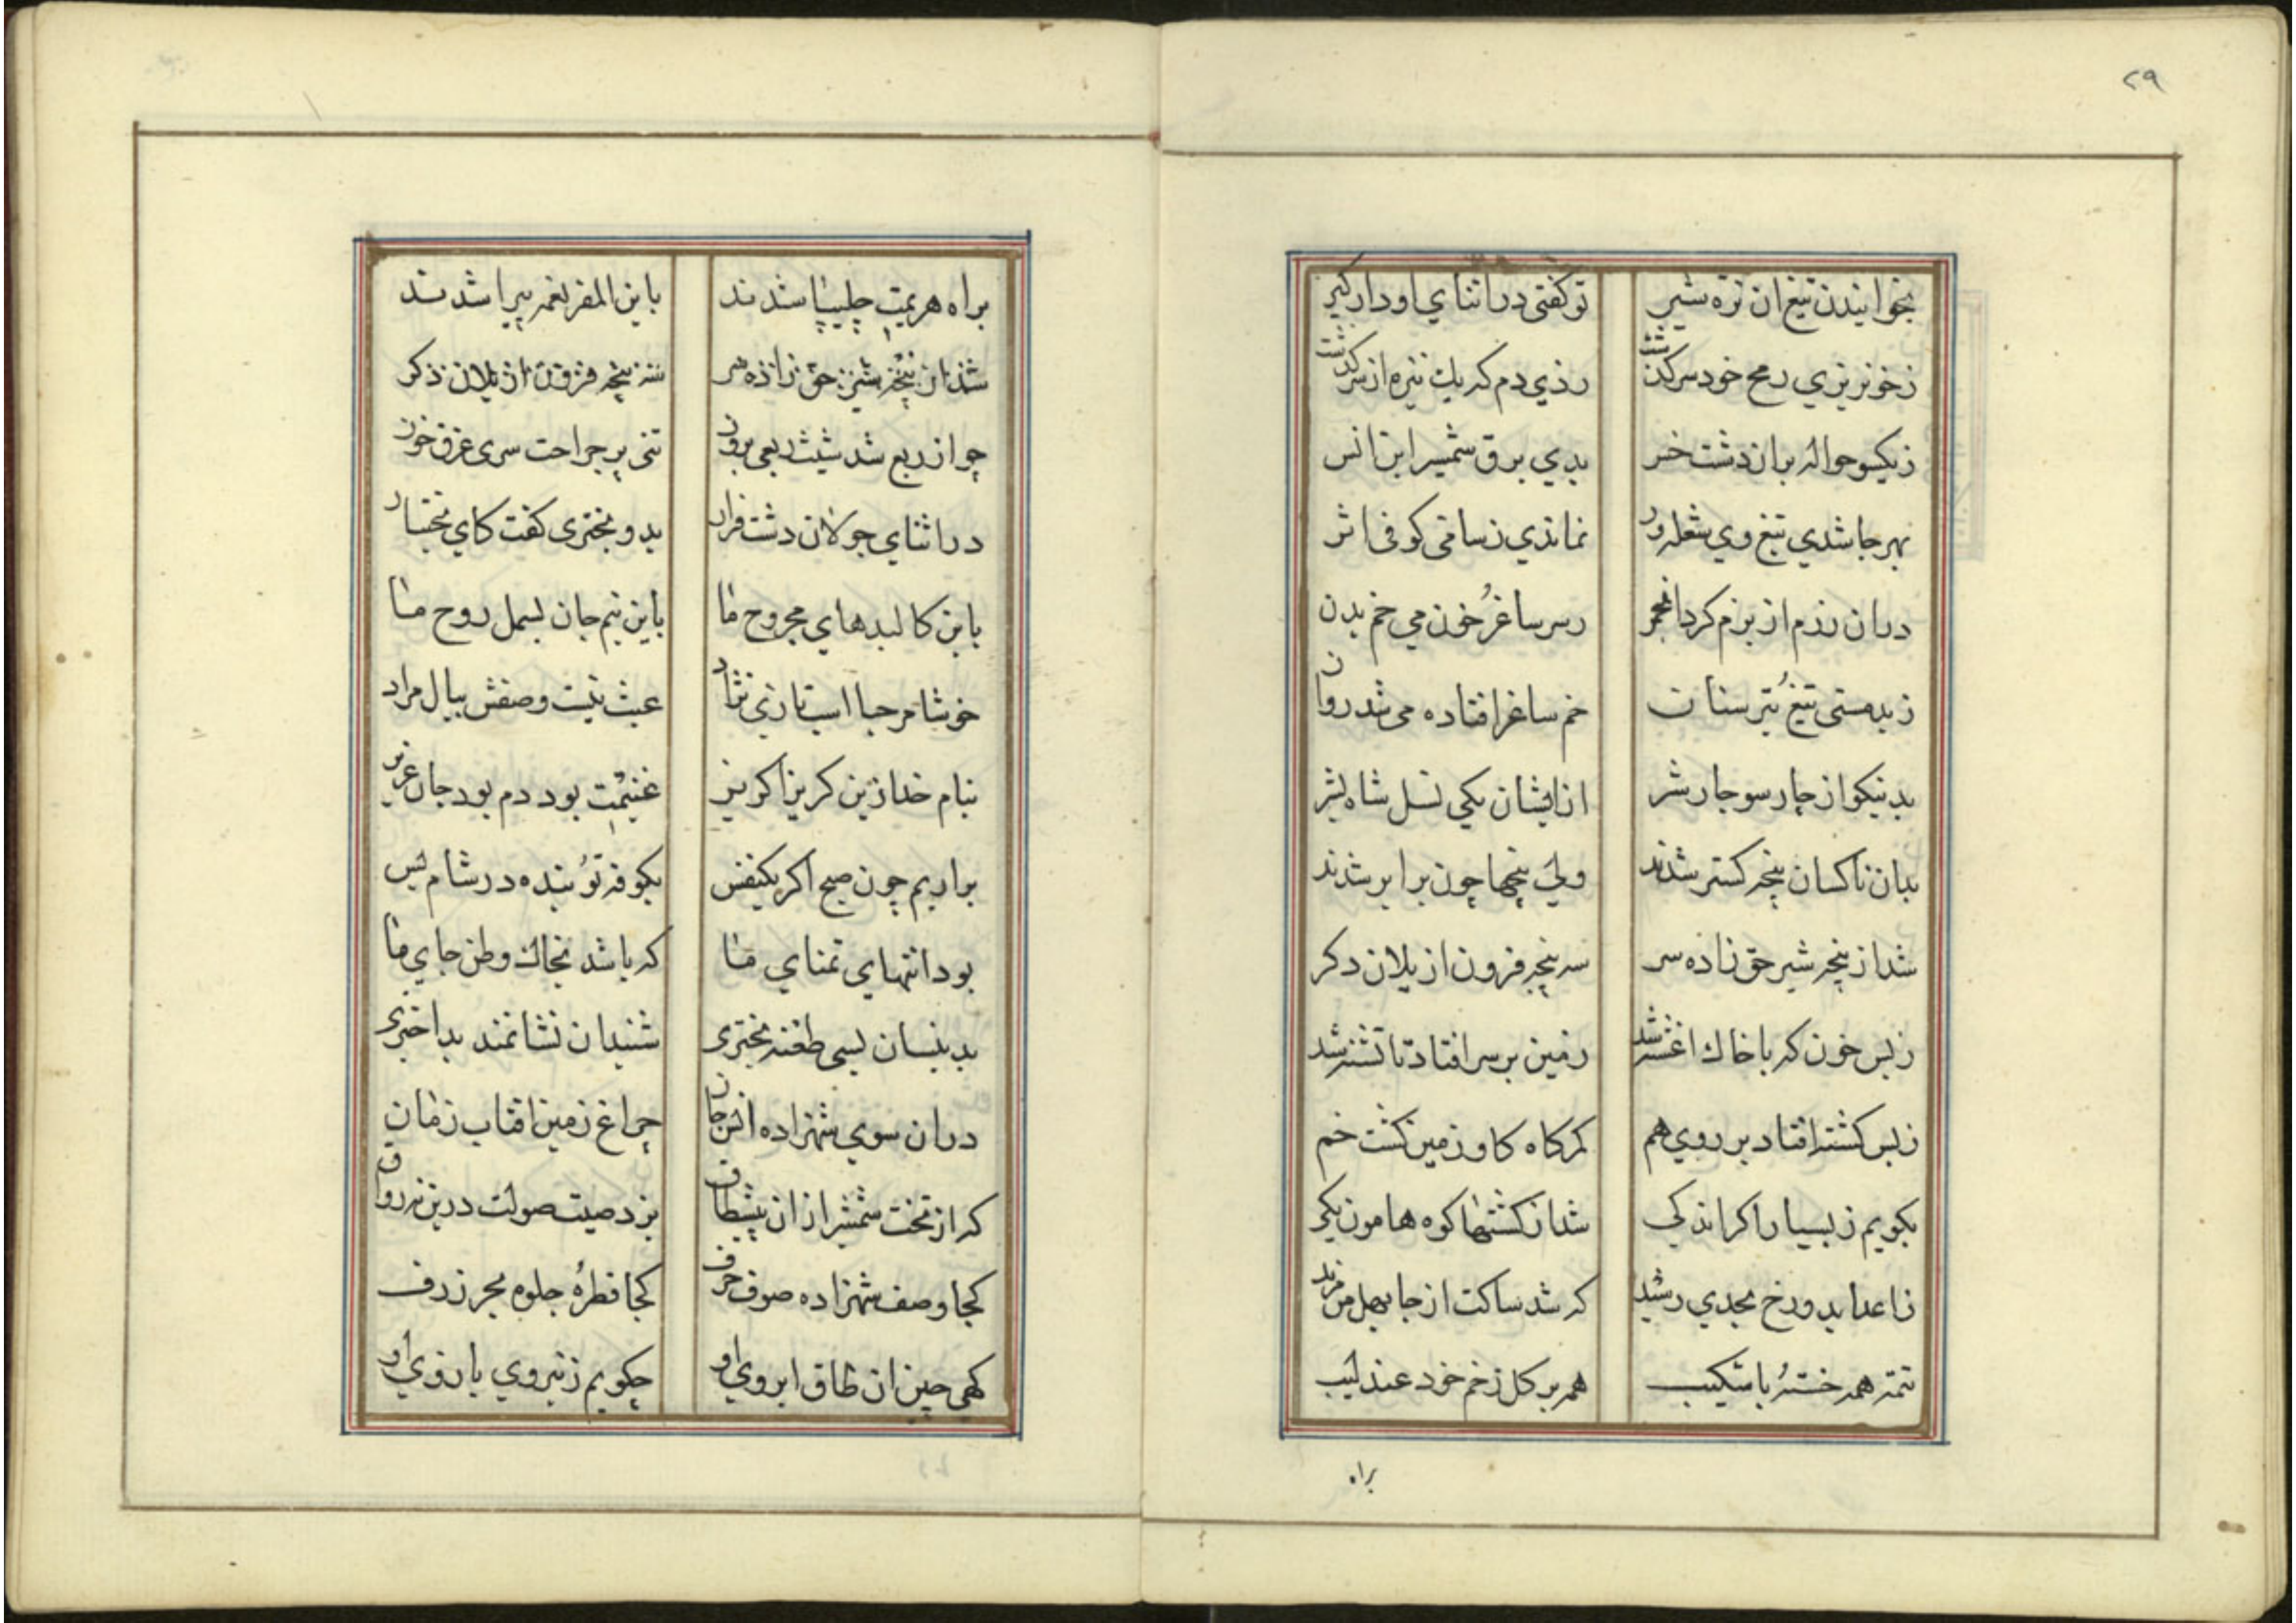 ۲۹
بخوانیدن تیغ ان نره شیر توکفتی در اثنای اودار کیر
زخونریزی رمح خود سرکذشت زدی دم که یك نیزه از سرکذشت
زیکسو حواله بران دشت خس بدی برق شمشیر ابن انس
بهر جا شدی تیغ وی شعله ور نماندی زساقی کوفی اثر
دران رزم از بزم کرد انجمن رسر ساغر خون می خم بدن
زبدمستی تیغ تیر سنان خم ساغر افتاده می شد روان
بدنیکو از چار سو چار شر از ایشان یکی نسل شاه بشر
بدان ناکسان پنجه کستر شدند ولی پنجها چون برابر شدند
شد از پنجه شیر حق زاده سر سه پنجه فزون از یلان دکر
زبس خون که با خاك اغشته شد زمین بر سر افتاد تا تشنه شد
زبس کشته افتاد بر روی هم کمرکاه کاو زمین کشت خم
بکویم زبسیار اکر اندکی شد از کشتها کوه هامون یکی
زاعدا بدوزخ بجدی رسید که شد ساکت از جا بهل من مزید
تتمه همه خسته با شکیب همه بر کل زخم خود عندلیب
براه
براه هزیمت چلیپا شدند باین المفر نغمه پیرا شدند
شد از پنجه شیر حق زاده سر سه پنجه فزون از یلان ذکر
چو از ربع شد شیث ربعی برون تنی پر جراحت سری غرق خون
در اثنای جولان دشت فرار بدو بختری کفت کای بختیار
باین کالبدهای مجروح ما باین نیم جان بسمل روح ما
خوشا مرحبا اسب تازی نژاد عبث نیست وصفش ببال مراد
بنام خدا زین کریز اکر نیز غنیمت بود دم بود جان عزیز
براریم چون صبح اکر یکنفس بکوفه تو بنده در شام پس
بود انتهای تمنای ما که باشد بخاك وطن جای ما
بدینسان بسی طعنه بختری شنید ان نشانمند بد اختری
دران سوی شهزاده انس جان چراغ زمین افتاب زمان
که از تخت شمشیر ازان پیشطاق بزد صیت صولت درین نه رواق
کجا وصف شهزاده صوف حرف کجا قطرۀ جلوه بحر ژرف
کهی چین ان طاق ابروی او چکویم زنیروی بازوی او